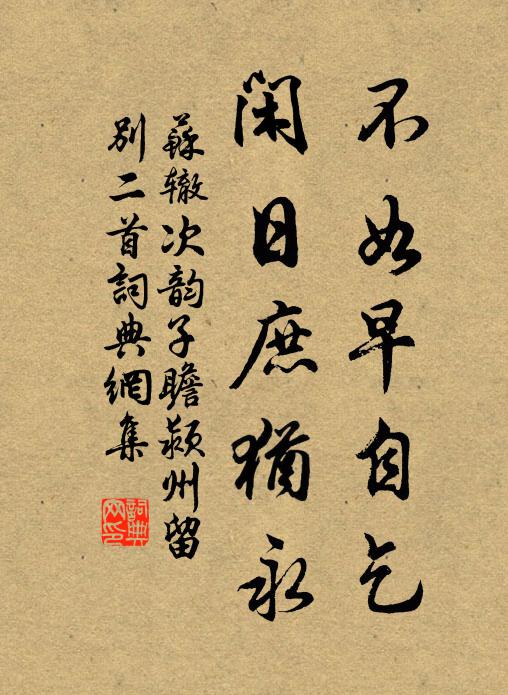 不如早自乞
閑日庶猶永
蘇辙次韵子瞻颍州留
別二首詞典網集
詞典
网印